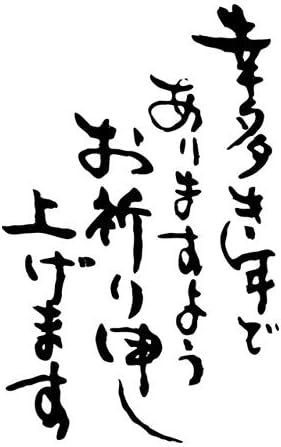 幸多き年で
ありますよう
お祈り申し
上げます